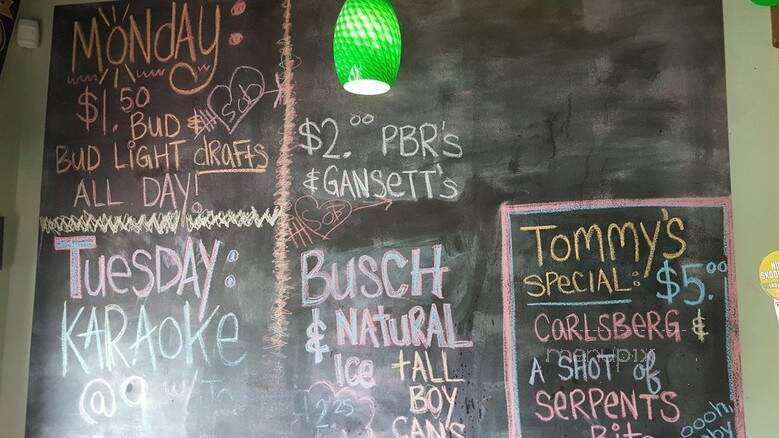 MONDAY:
$1.50 BUD &
SOB
BUD LIGHT DRAFTS
ALL DAY!
TUESDAY:
KARAOKE
@ 9 w/ To
$2.00 PBR's
& GANSETT's
SOB
BUSCH
& NATURAL
ICE TALL
BOY
2.25
CAN'S
TOMMY'S
SPECIAL: $5.00
CARLSBERG &
menupix
A SHOT OF
SERPENTS
Bite
oooh,